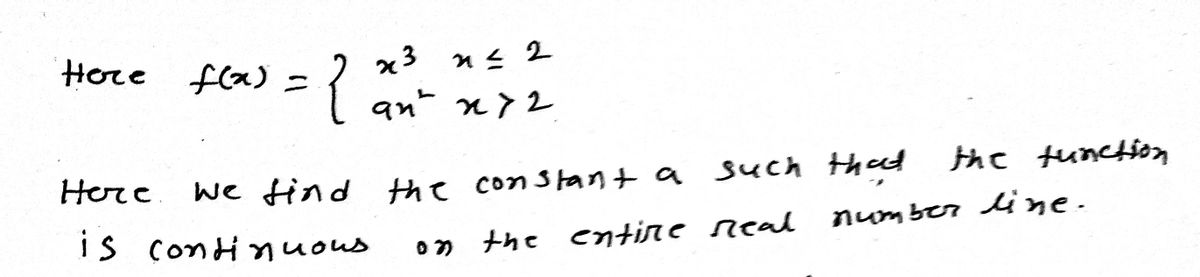 Here f(x) = { x³ x ≤ 2
ax² x > 2
Here we find the constant a such that the function
is continuous on the entire real number line.